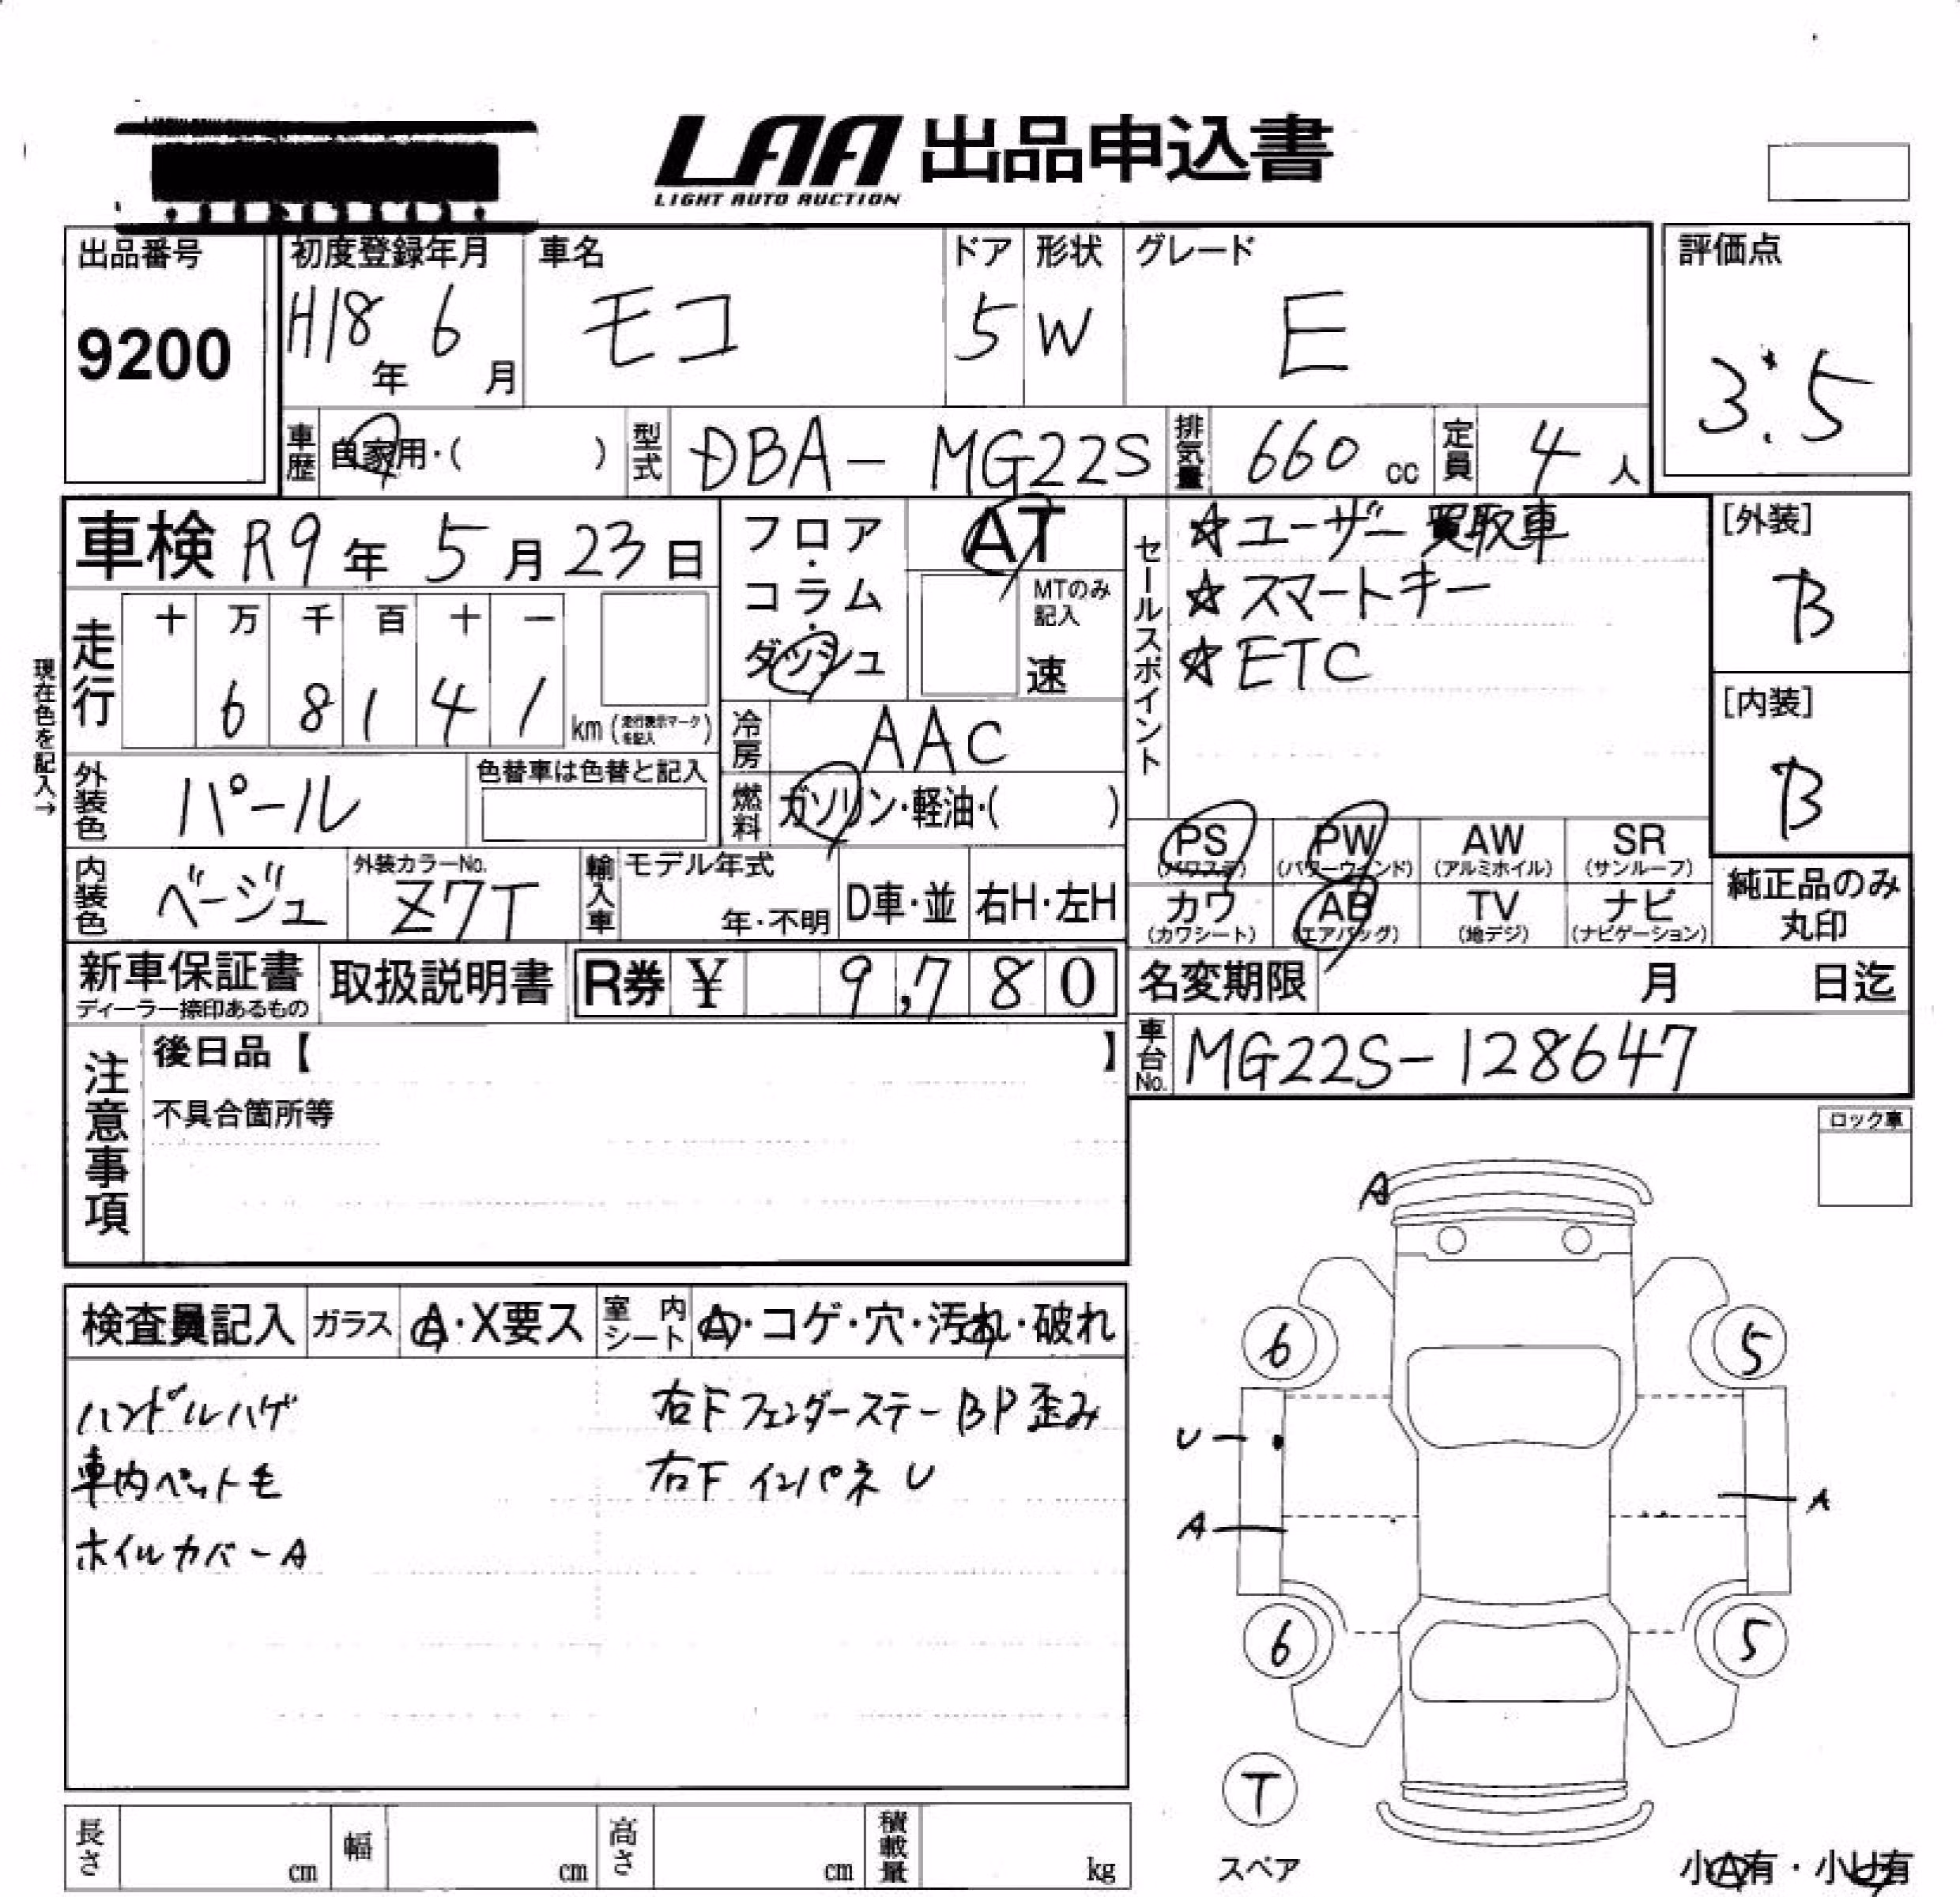 LAA 出品申込書
LIGHT AUTO AUCTION
出品番号
9200
初度登録年月
H18年 6月
車名
モコ
ドア
5
形状
W
グレード
E
評価点
3.5
車歴 自家用・( )
型式 DBA-MG22S
排気量 660 cc
定員 4人
車検 R9年 5月23日
フロア・コラム・ダッシュ
AT
MTのみ記入
速
セールスポイント
☆ユーザー買取車
☆スマートキー
☆ETC
[外装]
B
[内装]
B
現在色を記入→
走行
十 万 千 百 十 一
6 8 1 4 1
km (走行表示マークを記入)
冷房 AAC
外装色 パール
色替車は色替と記入
燃料 ガソリン・軽油・( )
PS (パワステ)
PW (パワーウィンド)
AW (アルミホイル)
SR (サンルーフ)
カワ (カワシート)
AB (エアバッグ)
TV (地デジ)
ナビ (ナビゲーション)
純正品のみ丸印
内装色 ベージュ
外装カラーNo.
Z7T
輸入車
モデル年式
年・不明
D車・並
右H・左H
新車保証書
ディーラー捺印あるもの
取扱説明書
R券 ¥ 9,780
名変期限 月 日迄
車台No. MG22S-128647
注意事項
後日品【 】
不具合箇所等
ロック車
検査員記入
ガラス A・X要ス
室内シート A・コゲ・穴・汚れ・破れ
ハンドルハゲ
車内ペット毛
ホイルカバーA
右FフェンダーステーBP歪み
右FインパネU
A
6
5
U
A
A
6
5
T
スペア
小A有・小U有
長さ cm
幅 cm
高さ cm
積載量 kg